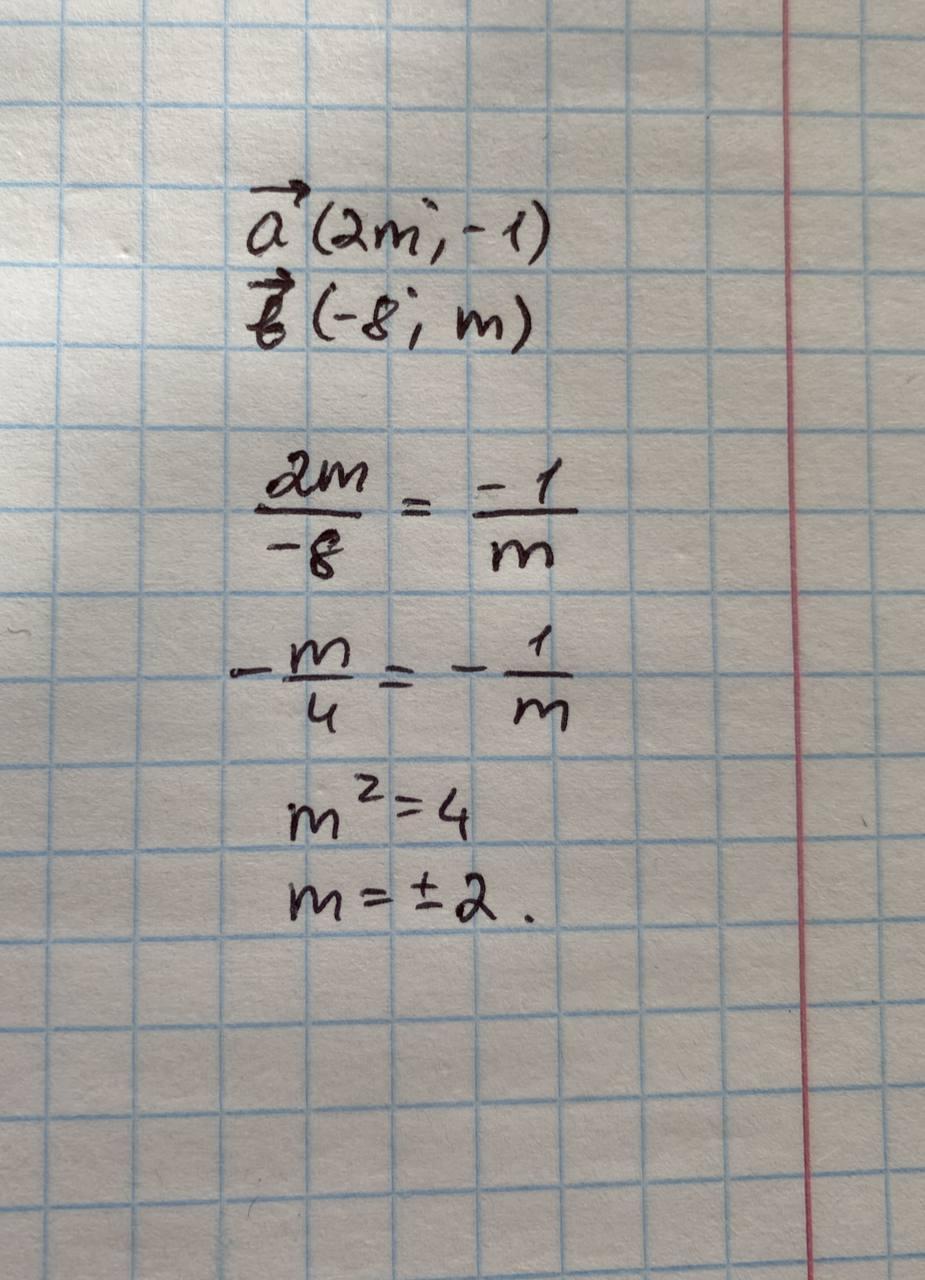 a⃗ (2m; -1)
b⃗ (-8; m)
2m/-8 = -1/m
-m/4 = -1/m
m² = 4
m = ±2.